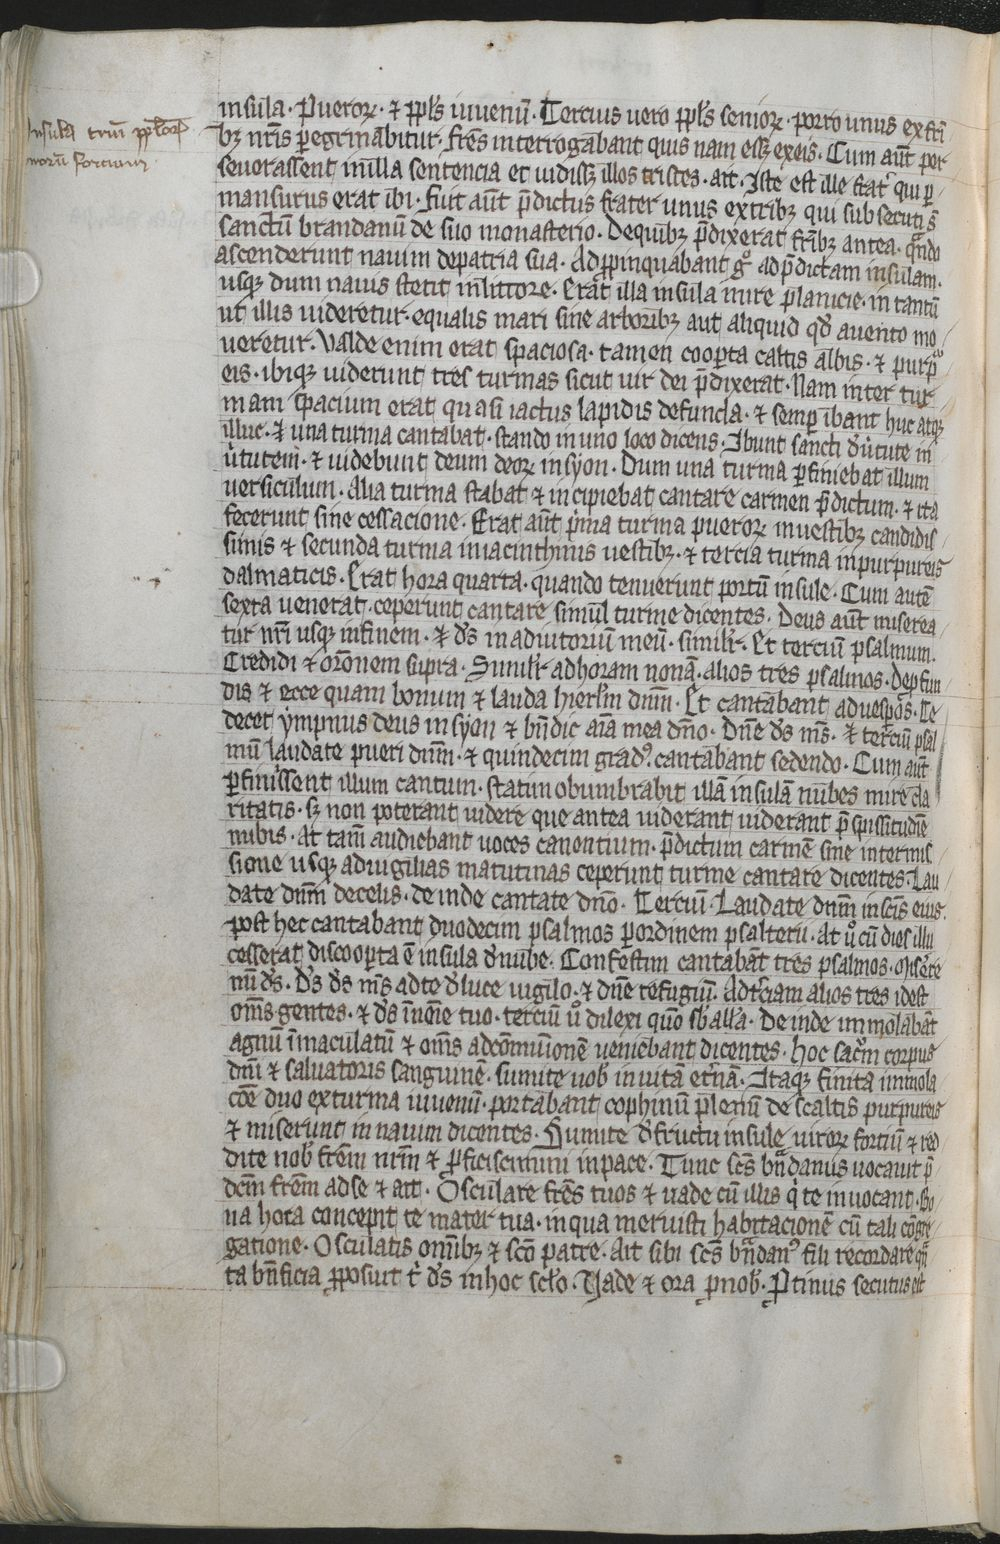 Insula triū ppl̄orꝫ
virorū forcium
insula. Pueroꝝ. ⁊ ppl̄s iuuenū. Tercius uero ppl̄s senioꝝ. porro unus ex fr̄i
bꝫ nr̄is ꝑegrinabitur. fr̄es interrogabant quis nam eēꝫ exeis. Cum aūt per
seuerassent in illa sentencia et uidisꝫ illos tristes. ait. Iste est ille frat̉ qui ꝑ
mansurus erat ibi. Fuit aūt p̄dictus frater unus extribꝫ qui sub secuti s̄
sanctū brandanū de suo monasterio. Dequibꝫ p̄dixerat fr̄ibꝫ antea. qn̄do
ascenderunt nauim depatria sua. Adꝓpinquabant gͦ adp̄dictam insulam.
usqꝫ dum nauis stetit inlittore. Erat illa insula mire planicie. in tantū
ut illis uideretur. equalis mari sine arboribꝫ aut aliquid qd̄ auento mo
ueretur. Valde enim erat spaciosa. tamen cooꝑta caltis albis. ⁊ purp̉
eis. ibiqꝫ uiderunt tres turmas sicut uir dei p̄dixerat. Nam inter tur
mam spacium erat quasi iactus lapidis defunda. ⁊ semꝑ ibant huc atqꝫ
illuc. ⁊ una turma cantabat. stando in uno loco dicens. Ibunt sancti d̉ uirtute in
ùtutem. ⁊ uidebunt deum deoꝝ insyon. Dum una turma ꝑfiniebat illum
uersiculum. Alia turma stabat ⁊ incipiebat cantare carmen p̄dictum. ⁊ ita
fecerunt sine cessacione. Erat aūt p̍ma turma pueroꝝ inuestibꝫ candidis
simis ⁊ secunda turma iniacinthinis uestibꝫ. ⁊ tercia turma inpurpureis
dalmaticis. Erat hora quarta. quando tenuerunt portū insule. Cum autē
sexta uenerat. ceperunt cantare simul turme dicentes. Deus aūt miserea
tur nr̄i usqꝫ infinem. ⁊ d̄s in adiutoriū meū. simil̄r. Et terciū psalmum.
Credidi ⁊ or̄onem supra. Simil̄r adhoram nonā. alios tres psalmos. Deꝓfun
dis ⁊ ecce quam bonum ⁊ lauda hierl̄m dnm̄. Et cantabant aduesꝑos. Te
decet ympnus deus insyon ⁊ bn̄dic aīa mea dn̄o. Dn̄e d̄s m̄s. ⁊ terciū psal
mū laudate pueri dnm̄. ⁊ quindecim gradꝰ. cantabant sedendo. Cum aūt
ꝑfinissent illum cantum. statim obumbrabit illā insulā nubes mire cla
ritatis. sꝫ non poterant uidere que antea uiderant uiderant p̄ spissitudīe
nubis. At tam̄ audiebant uoces canentium. p̄dictum carmē sine intermis
sione usqꝫ aduigilias matutinas ceperunt turme cantare dicentes. Lau
date dnm̄ decelis. deinde cantate dn̄o. Terciū. Laudate dnm̄ insc̄is eius.
post hec cantabant duodecim psalmos ꝑordinem psalterii. At uͦ cū dies illu
cesserat discooꝑta ē insula d̉ nube. Confestim cantabāt tres psalmos. Misere
m̄i d̄s. D̄s d̄s m̄s adte d̉ luce uigilo. ⁊ dn̄e refugiū. Adt̉ciam alios tres idest
om̄s gentes. ⁊ d̄s in noīe tuo. terciū uͦ dilexi quō sb̉ all̄a. Deinde immolabāt
agnū ī maculatū ⁊ om̄s adcōmuionē ueniebant dicentes. Hoc sacr̄m corpus
dnī ⁊ saluatoris sanguinē. sumite uob̉ inuitā et̉nā. Itaqꝫ finita immola
cōe duo exturma iuuenū. portabant cophinū plenū de scaltis purpureis
⁊ miserunt in nauim dicentes. Sumite d̉ fructu insule uiroꝝ fortiū ⁊ red
dite nob̉ fr̄em nr̄m ⁊ ꝓficiscimini inpace. Tunc sc̄s bn̄danus uocauit p̄
dc̄m fr̄em adse ⁊ ait. Osculare fr̄es tuos ⁊ uade cū illis q̍ te inuocant. Bo
na hora concepit te mater tua. inqua meruisti habitacionē cū tali cōgre
gatione. Osculatis omībꝫ ⁊ sc̄o patre. Ait sibi sc̄s bn̄danꝰ fili recordare qn̄
ta bn̄ficia ꝓposuit t̍ d̄s inhoc scl̄o. Vade ⁊ ora ꝓnob̉. Ꝓtinus secutus est